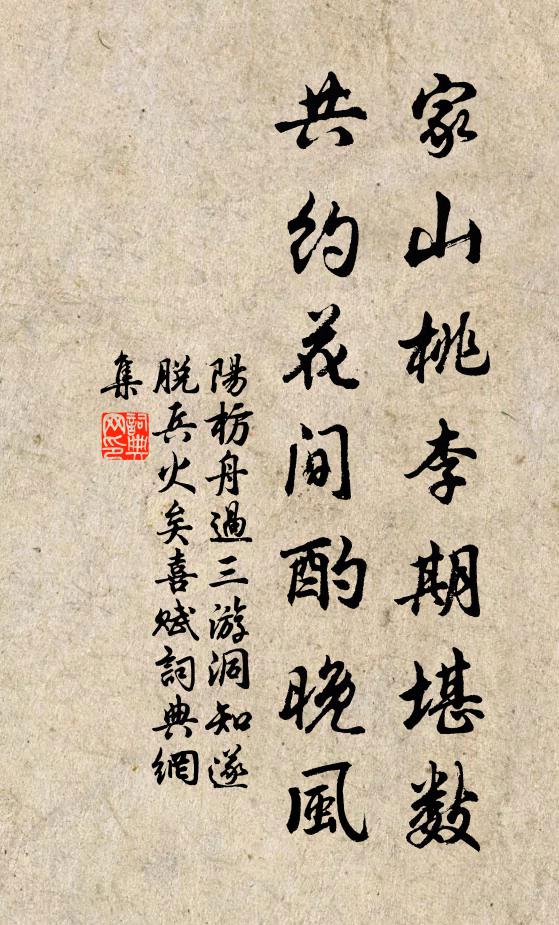 家山桃李期堪數
共約花間酌晚風
陽枋舟過三游洞知遂
脫兵火矣喜賦詞典網
集
詞典
网印